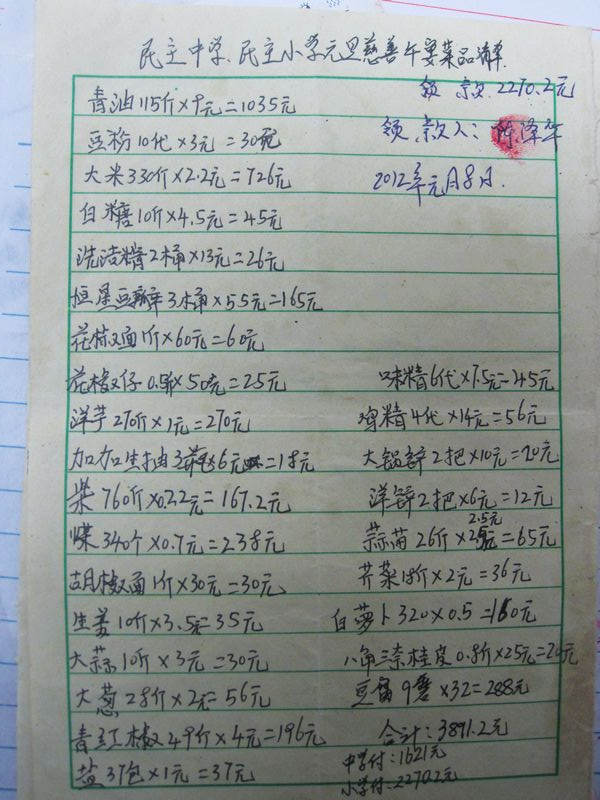 民主中学、民主小学元旦慈善午宴菜品清单
青油115斤×9元=1035元
领款2270.2元
豆粉10代×3元=30元
领款人:陈泽华
大米330斤×2.2元=726元
2012年元月8日.
白糖10斤×4.5元=45元
洗洁精2桶×13元=26元
恒星豆瓣3桶×55元=165元
花椒面1斤×60元=60元
花椒仔0.5斤×50元=25元
味精6代×7.5元=45元
洋芋270斤×1元=270元
鸡精4代×14元=56元
加加生抽3瓶×6元=18元
大锅铲2把×10元=20元
柴760斤×0.22元=167.2元
洋铲2把×6元=12元
煤340个×0.7元=238元
蒜苗26斤×2.5元=65元
胡椒面1斤×30元=30元
芥菜18斤×2元=36元
生姜10斤×3.5元=35元
白萝卜320×0.5=160元
大蒜10斤×3元=30元
八角三柰桂皮0.8斤×25元=20元
大葱28斤×2元=56元
豆腐9×32=288元
青红椒49斤×4元=196元
合计:3891.2元
盐37包×1元=37元
中学付:1621元
小学付:2270.2元